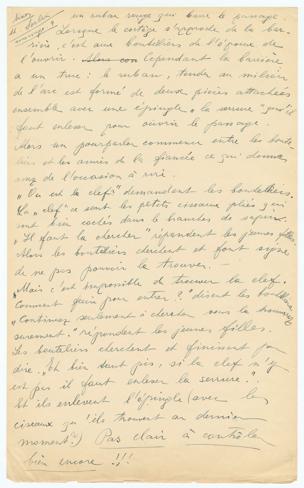 un ruban rouge qui barre le passage.
Lorsque le cortège s'approche de la bar-
rière, c'est aux bouteliers de l'épouse de
l'ouvrir. Cependant la barrière
a un truc : le ruban, tendu au milieu
de l'arc est formé de deux pièces attachées
ensemble avec une épingle, la serrure "qu'il
faut enlever pour ouvrir le passage.
Alors un pourparler commence entre les boute-
liers et les amies de la fiancée ce qui donne
de l'occasion à rire.
"Où est la clef" demandent les bouteliers.
La "clef" ce sont les petits ciseaux pliés qui
sont bien cachés dans le branches de sapin.
"Il faut la chercher" répondent les jeunes filles.
Alors les bouteliers cherchent et font signe
de ne pas pouvoir la trouver.
"Mais c'est impossible de trouver la clef.
Comment faire pour entrer?" disent les bouteliers
"Continuez seulement à chercher, vous la trouverez
surement." répondent les jeunes filles.
Les bouteliers cherchent et finissent par
dire, "Et bien tant pis, si la clef n'y
est pas il faut enlever la serrure".
Et ils enlèvent l'épingle (avec les
ciseaux qu'ils trouvent au dernier
moment?) Pas clair à contrôler
bien encore !!!